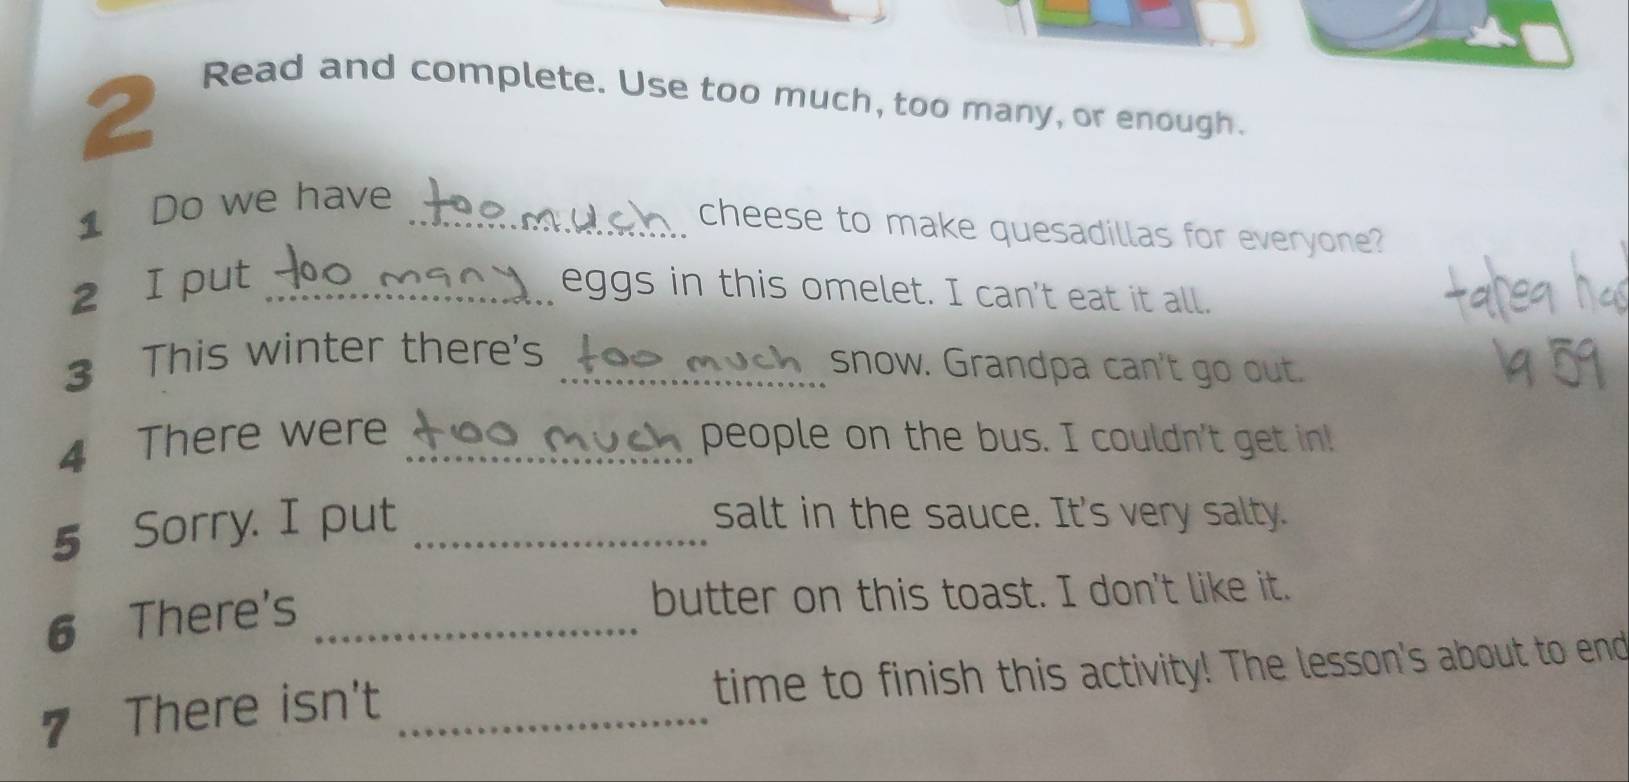 2 Read and complete. Use too much, too many, or enough.
1 Do we have too much cheese to make quesadillas for everyone?
2 I put too many eggs in this omelet. I can't eat it all.
3 This winter there's too much snow. Grandpa can't go out.
4 There were too much people on the bus. I couldn't get in!
5 Sorry. I put ........ salt in the sauce. It's very salty.
6 There's ........ butter on this toast. I don't like it.
7 There isn't ........ time to finish this activity! The lesson's about to end
tarea has
la 59